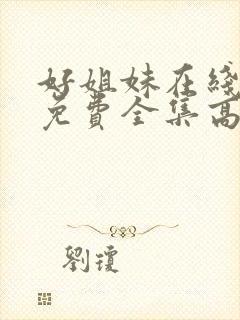 好姐妹在綫
免費全集高
劉瓊